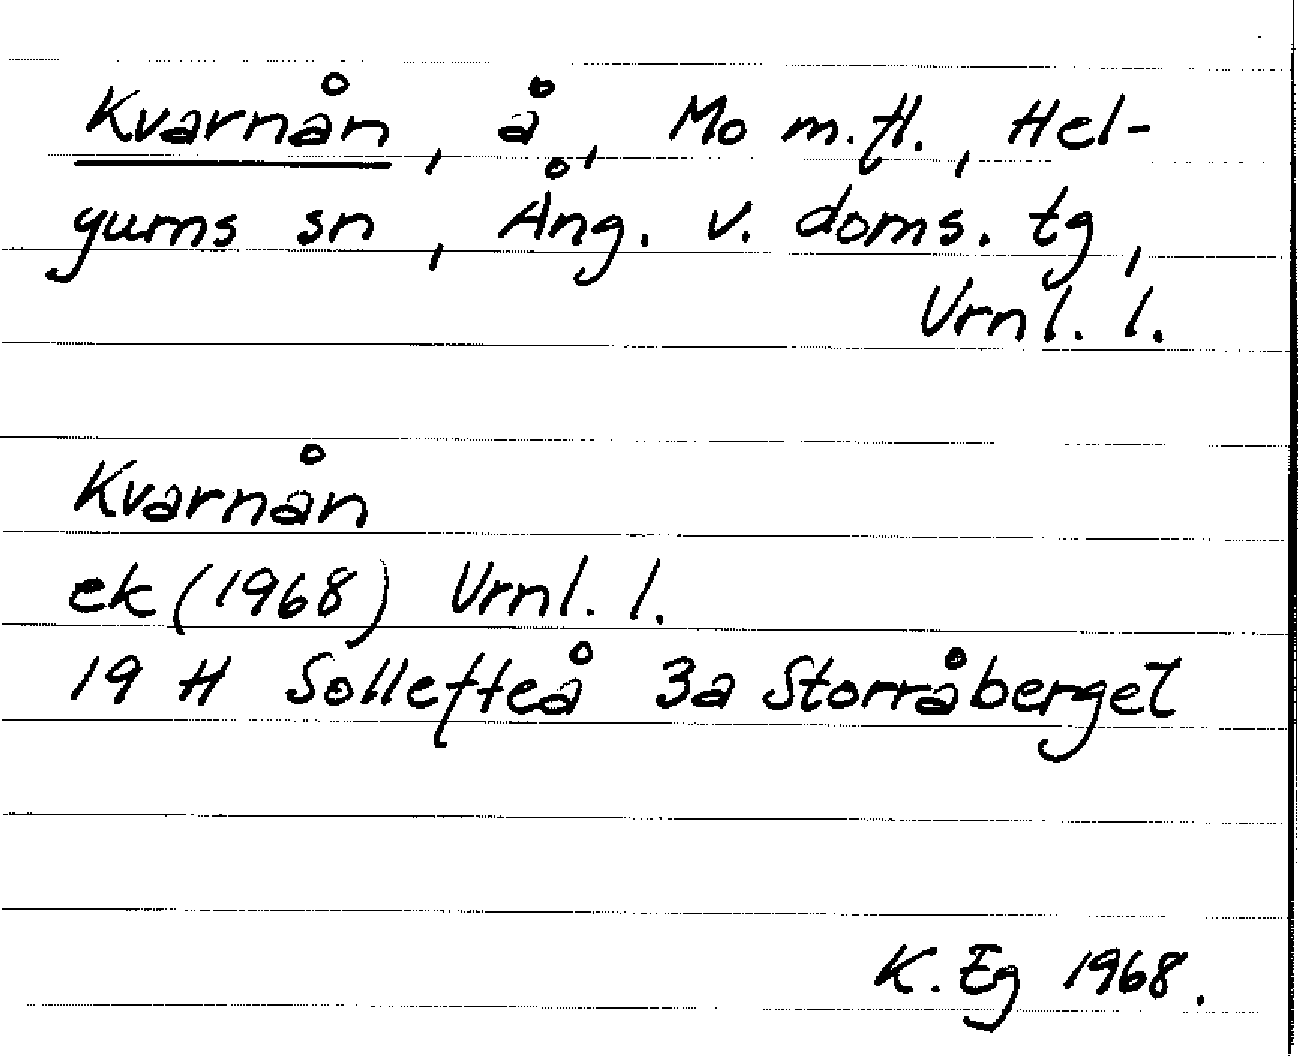 Kvarnån, å, Mo m.fl., Hel-
gums sn, Ång. v. doms. tg,
Vrnl. l.
Kvarnån
ek (1968) Vrnl. l.
19 H Sollefteå 3a Storråberget
K. Eg 1968.